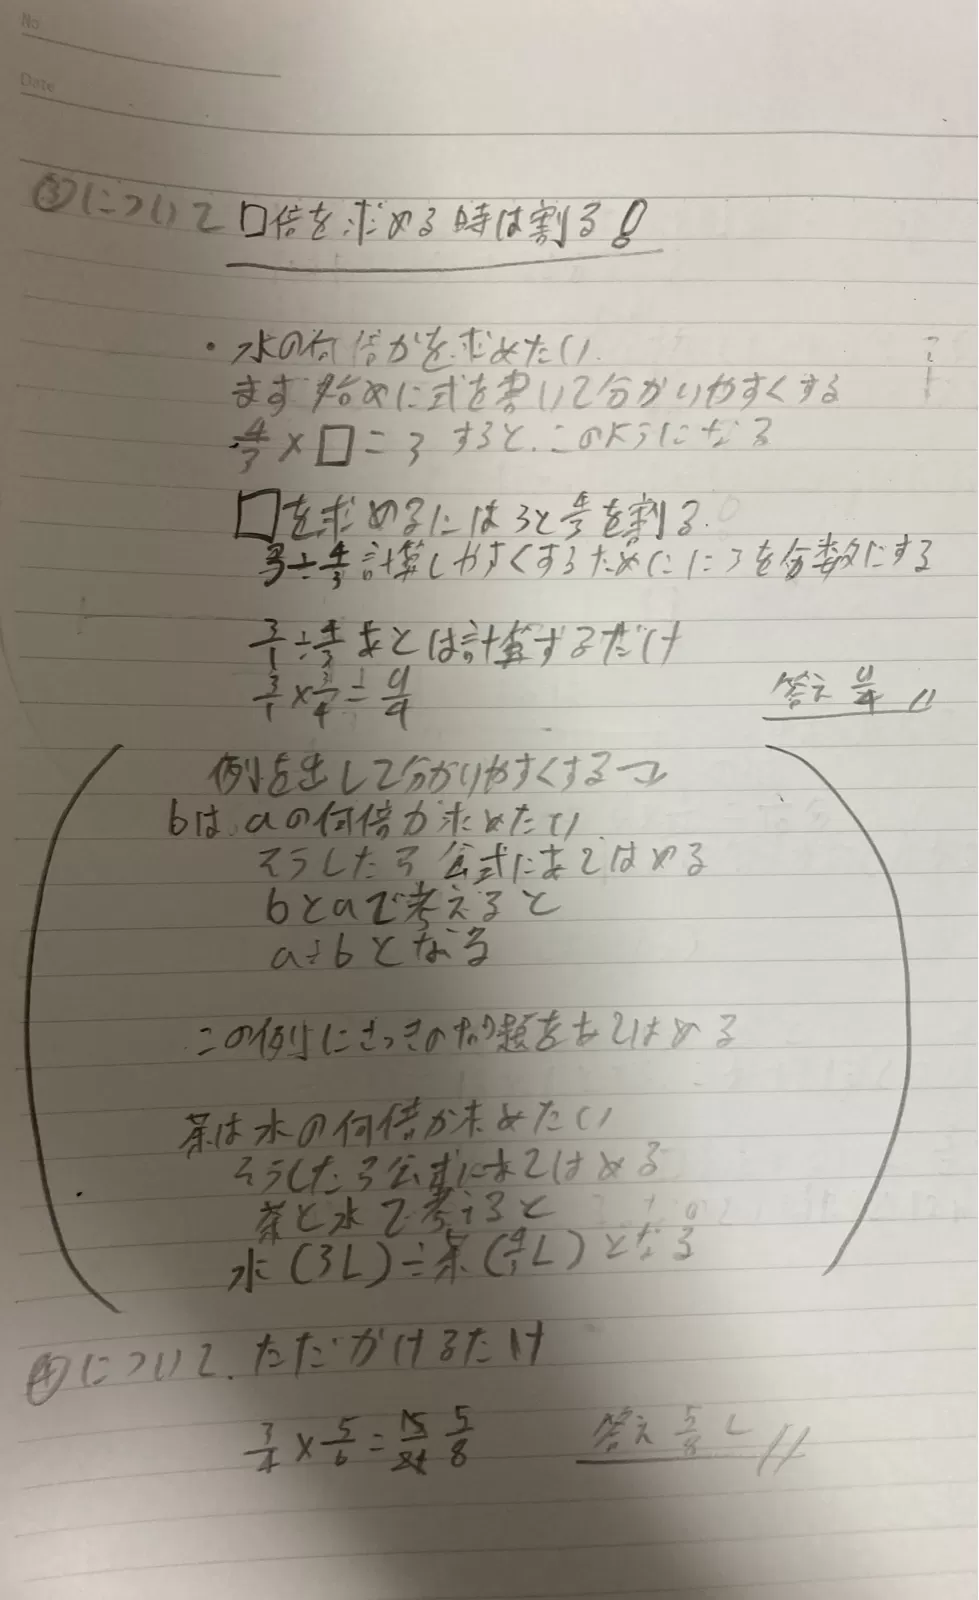 No.
Date
③について □倍を求める時は割る!
・水の何倍かを求めたい
まず始めに式を書いて分かりやすくする
4/3 × □ = 3 すると、このようになる
□を求めるには3と4/3を割る
3÷4/3 計算しやすくするためにに3を分数にする
3/1 ÷ 4/3 あとは計算するだけ
3/1 × 3/4 = 9/4 答え 9/4
例を出して分かりやすくする
bは、aの何倍か求めたい
そうしたら公式にあてはめる
bとaで考えると
a÷bとなる
この例にさっきの問題をあてはめる
茶は水の何倍か求めたい
そうしたら公式にあてはめる
茶と水で考えると
水(3L)÷茶(4/3L)となる
④について、ただかけるだけ
3/4 × 5/6 = 15/24 5/8 答え 5/8 L